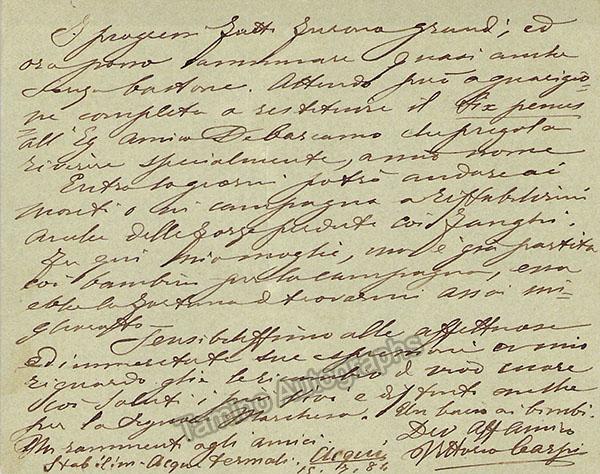 I progressi fatti furono grandi, ed
ora posso camminare quasi anche
senza bastone. Attendo però a guarigio-
ne completa a restituire il
all' Eg. Amico che pregola
riverire specialmente, a mio nome
Entro giorni potrò andare ai
monti o in campagna a riffabilirmi
anche delle forze perdute coi fanghi.
Fu qui mia moglie, ma è già partita
coi bambini per la campagna, essa
ebbe la fortuna di trovarmi assai mi-
gliorato
Sensibilissimo alle affettuose
ed immeritate sue espressioni a mio
riguardo gliene di vivo cuore
coi saluti i miei e distinti anche
per la Signora Marchesa. Un bacio ai bimbi.
Mi rammenti agli amici. Dev Aff amico
Stabilim. Acqui termali. Acqui Vittorio Carpi
Tamino Autographs